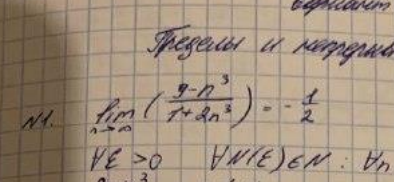 вариант
Пределы и непрерыв
№1. lim n→∞ (9-n³ / 1+2n³) = -1/2
∀ε >0 ∀N(ε)∈N : ∀n